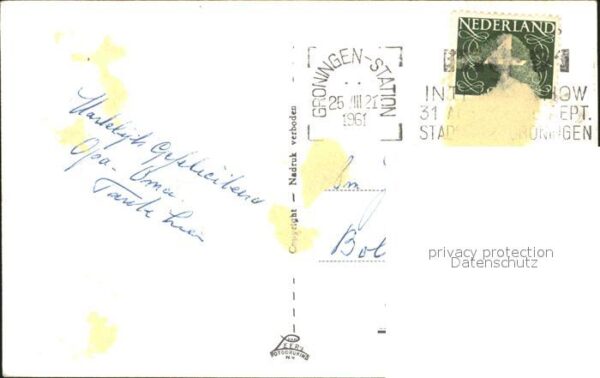 Hartelijk Gefeliciteerd
Opa - Oma.
Tante
Copyright - Nadruk verboden
GRONINGEN-STATION
25 VIII 21
1961
NEDERLAND
INT OW
31 A EPT.
STAD GRONINGEN
Bol
privacy protection
Datenschutz
FOTODRUKIND
N.V.